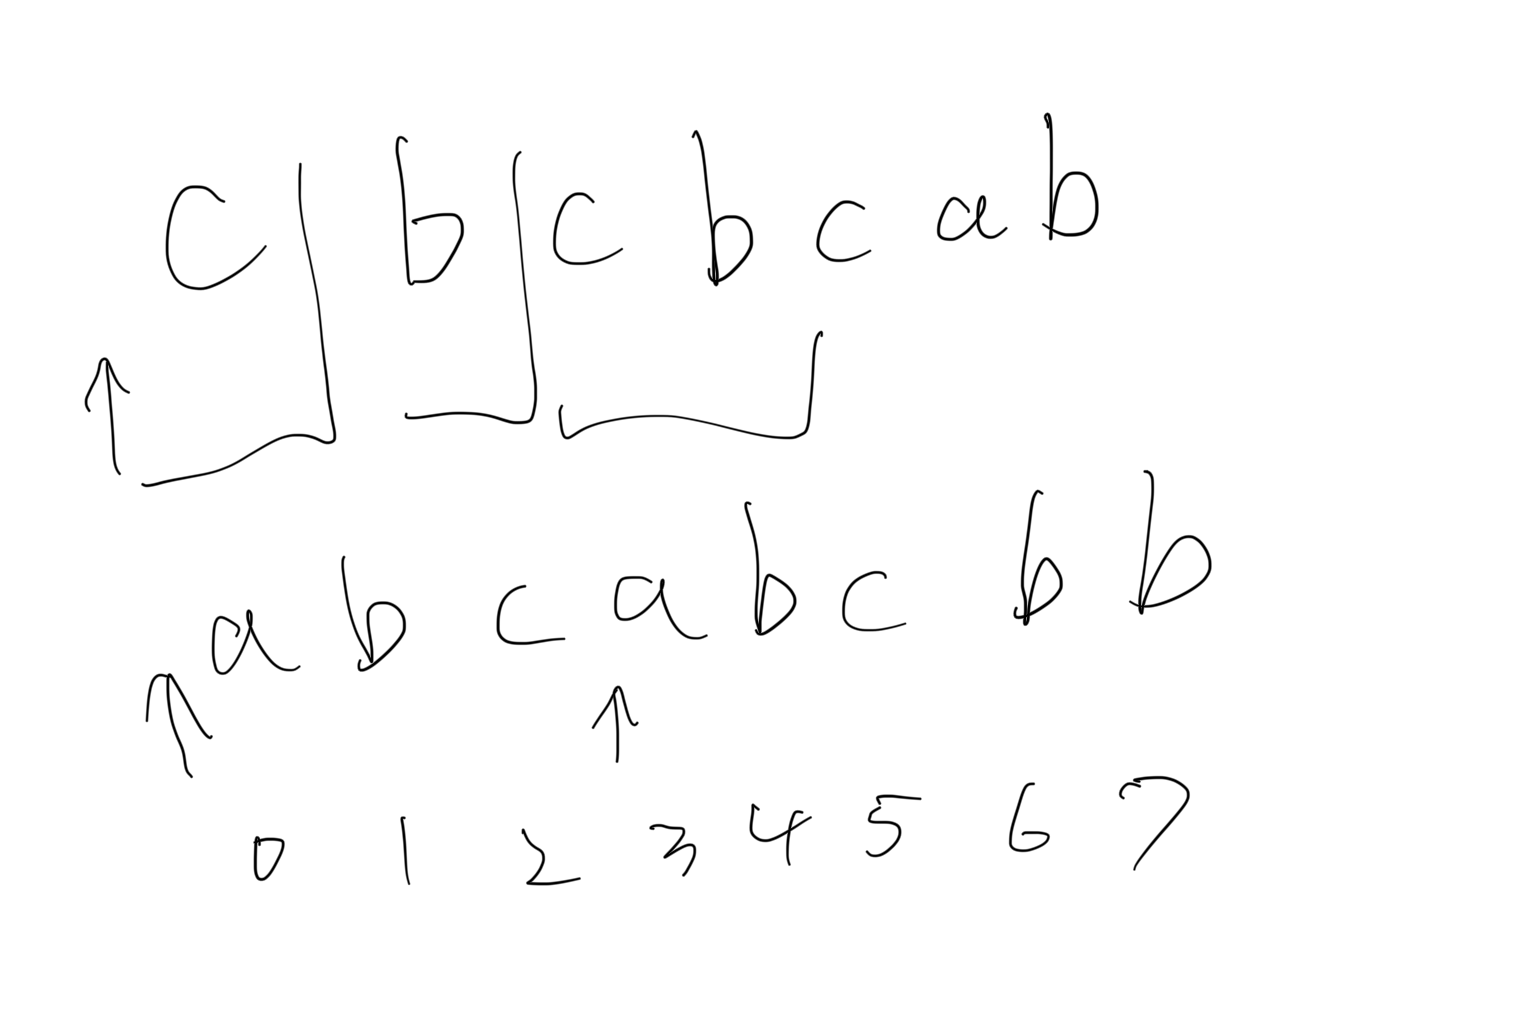 c b c b c a b
a b c a b c b b
0 1 2 3 4 5 6 7